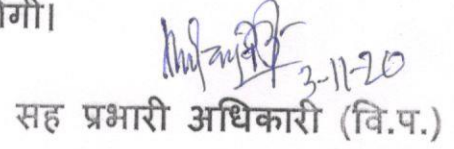 3-11-20
सह प्रभारी अधिकारी (वि.प.)